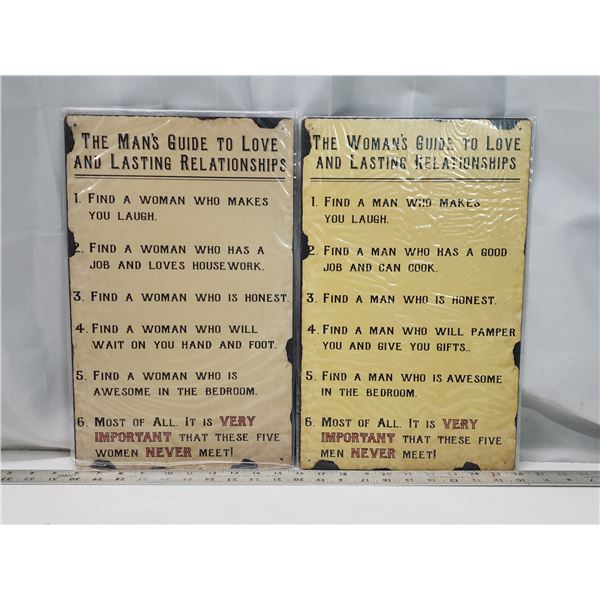 THE MAN'S GUIDE TO LOVE
AND LASTING RELATIONSHIPS
1. FIND A WOMAN WHO MAKES
YOU LAUGH.
2. FIND A WOMAN WHO HAS A
JOB AND LOVES HOUSEWORK.
3. FIND A WOMAN WHO IS HONEST.
4. FIND A WOMAN WHO WILL
WAIT ON YOU HAND AND FOOT.
5. FIND A WOMAN WHO IS
AWESOME IN THE BEDROOM.
6. MOST OF ALL. IT IS VERY
IMPORTANT THAT THESE FIVE
WOMEN NEVER MEET!
THE WOMAN'S GUIDE TO LOVE
AND LASTING RELATIONSHIPS
1. FIND A MAN WHO MAKES
YOU LAUGH.
2. FIND A MAN WHO HAS A GOOD
JOB AND CAN COOK.
3. FIND A MAN WHO IS HONEST.
4. FIND A MAN WHO WILL PAMPER
YOU AND GIVE YOU GIFTS..
5. FIND A MAN WHO IS AWESOME
IN THE BEDROOM.
6. MOST OF ALL. IT IS VERY
IMPORTANT THAT THESE FIVE
MEN NEVER MEET!